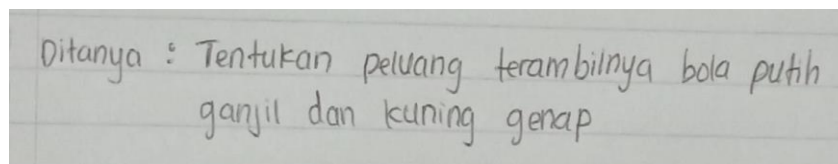 Ditanya : Tentukan peluang terambilnya bola putih
ganjil dan kuning genap